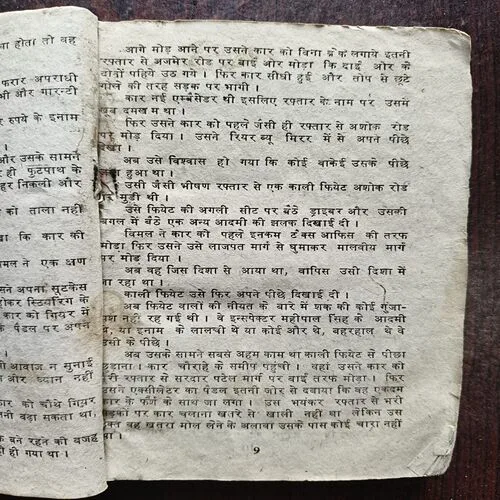 ा होता तो वह
फरार अपराधी
भी और गारन्टी
रुपये के इनाम
और उसके सामने
ही फुटपाथ के
हर निकली और
को ताला नहीं
खा कि कार की
मल ने एक क्षण
सने अपना सूटकेस
होकर स्टियरिंग के
कार को गियर में
के पैडल पर अपने
आवाज न सुनाई
और ध्यान नहीं
कार को चौथे गियर
नी बढ़ा सकता था,
क बने रहने की वजह
ही हो गया था ।
आगे मोड़ आने पर उसने कार को बिना ब्रेक लगाये इतनी
रफ्तार से अजमेर रोड पर बाईं ओर मोड़ा कि दाईं ओर के
दोनों पहिये उठ गये । फिर कार सीधी हुई और तोप से छूटे
गोले की तरह सड़क पर भागी ।
कार नई एम्बेसेडर थी इसलिए रफ्तार के नाम पर उसमें
खूब दमखम था ।
फिर उसने कार को पहले जैसी ही रफ्तार से अशोक रोड
पर मोड़ दिया । उसने रियर व्यू मिरर में से अपने पीछे
देखा ।
अब उसे विश्वास हो गया कि कोई वाकेई उसके पीछे
हुआ था ।
उसी जैसी भीषण रफ्तार से एक काली फियेट अशोक रोड
पर मुड़ी थी ।
उसे फियेट की अगली सीट पर बैठे ड्राइवर और उसकी
बगल में बैठे एक अन्य आदमी की झलक दिखाई दी ।
विमल ने कार को पहले इनकम टैक्स आफिस की तरफ
मोड़ा फिर उसने उसे लाजपत मार्ग से घुमाकर मालवीय मार्ग
पर मोड़ दिया ।
अब वह जिस दिशा से आया था, वापिस उसी दिशा में
जा रहा था ।
काली फियेट उसे फिर अपने पीछे दिखाई दी ।
अब फियेट वालों की नीयत के बारे में शक की कोई गुंजा-
यश नहीं रह गई थी । वे इन्सपेक्टर महीपाल सिंह के आदमी
थे, या इनाम के लालची थे या कोई और थे, बहरहाल थे वे
उसी के पीछे ।
अब उसके सामने सबसे अहम काम था काली फियेट से पीछा
छुड़ाना । कार चौराहे के समीप पहुंची । वहां उसने कार को
पूरी रफ्तार से सरदार पटेल मार्ग पर बाईं तरफ मोड़ा । फिर
उसने एक्सीलेटर का पैडल इतनी जोर से दबाया कि वह एकदम
कार के फर्श के साथ जा लगा । उस भयंकर रफ्तार से भरी
सड़कों पर कार चलाना खतरे से खाली नहीं था लेकिन उस
वक्त वह खतरा मोल लेने के अलावा उसके पास कोई चारा नहीं
था ।
9